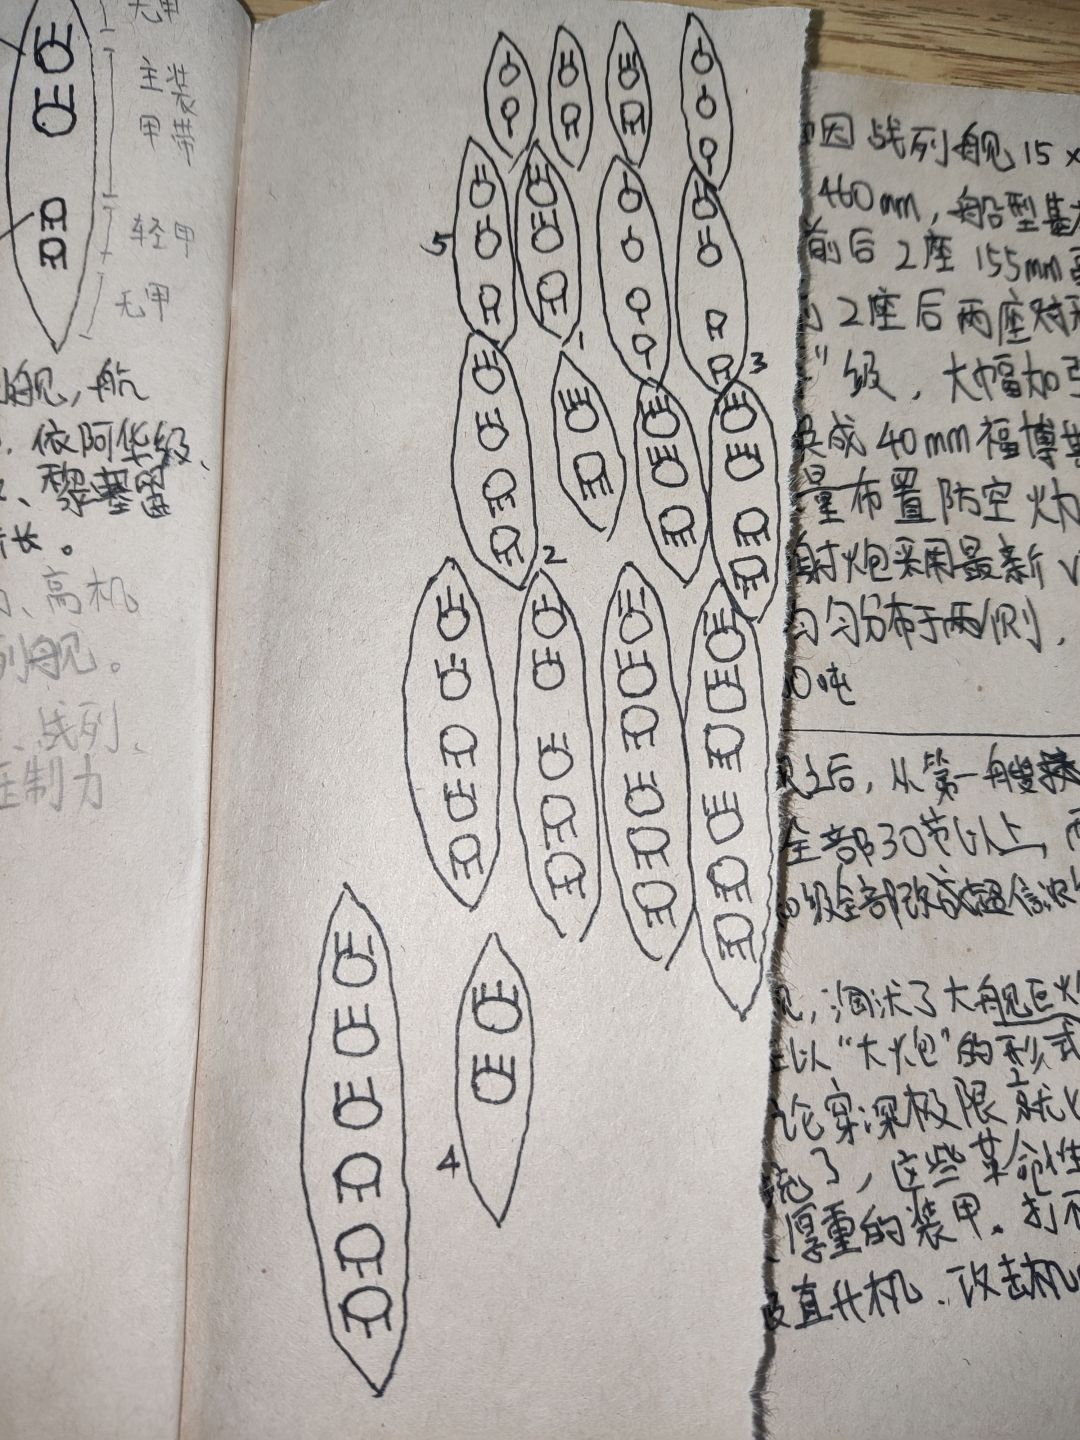 无甲
主装
甲带
轻甲
无甲
舰，航
依阿华级、
黎塞留
长。
、高机
列舰。
、战列、
制力
5
1
3
2
4
因战列舰15x
460mm，船型基
前后2座155mm
2座后两座对
"级，大幅加强
换成40mm福博
量布置防空火力
射炮采用最新V
匀分布于两侧，
0吨
之后，从第一艘
全部30节以上，
级全部改成超信浓
，淘汰了大舰巨炮
以"大炮"的形式
论穿深极限就
了，这些革命性
厚重的装甲．打不
直升机．攻击机